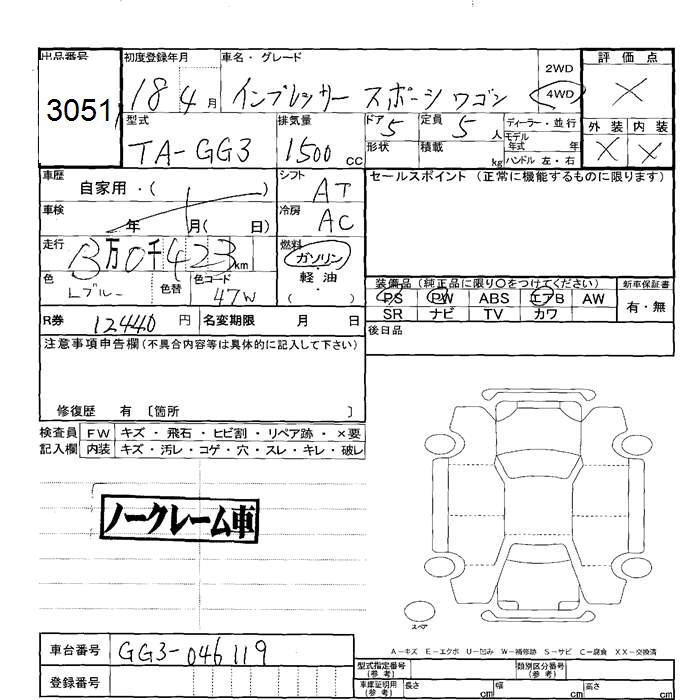 出品番号 初度登録年月 車名・グレード 2WD 評価点
3051 18 4月 インプレッサー スポーツワゴン 4WD ×
型式 排気量 ドア 5 定員 5人 ディーラー・並行 外装 内装
TA-GG3 1500cc 形状 積載 kg モデル年式 年 × ×
ハンドル 左・右
車歴 自家用・( ) シフト AT セールスポイント (正常に機能するものに限ります)
車検 年 月( 日) 冷房 AC
走行 3万0千423km 燃料 ガソリン・軽油・( )
色 Lブルー 色替 色コード 47W
装備品(純正品に限り〇をつけてください) 新車保証書
PS PW ABS エアB AW 有・無
SR ナビ TV カワ
R券 12440円 名変期限 月 日 後日品
注意事項申告欄(不具合内容等は具体的に記入して下さい)
修復歴 有 〔箇所 〕
検査員 FW キズ・飛石・ヒビ割・リペア跡・×要
記入欄 内装 キズ・汚レ・コゲ・穴・スレ・キレ・破レ
ノークレーム車
スペア
A-キズ E-エクボ U-凹み W-補修跡 S-サビ C-腐食 XX-交換済
車台番号 GG3-046119 型式指定番号(参考) 類別区分番号(参考)
登録番号 車庫証明用(参考) 長さ cm 幅 cm 高さ cm